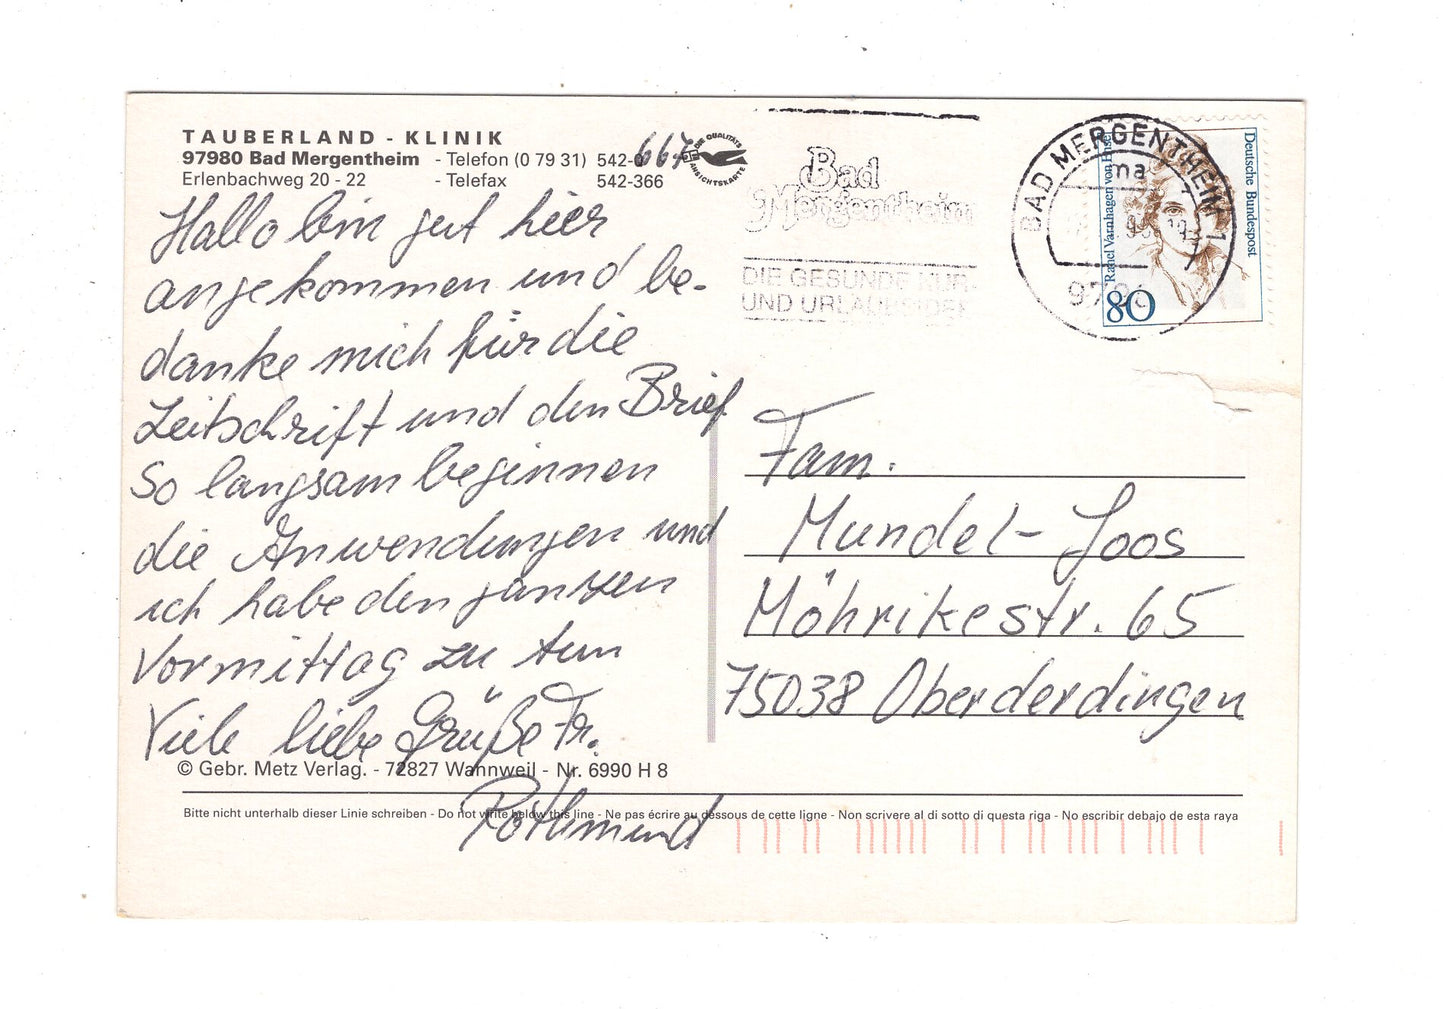 TAUBERLAND - KLINIK
97980 Bad Mergentheim - Telefon (0 79 31) 542-0 667
Erlenbachweg 20 - 22 - Telefax 542-366
DIE QUALITÄTS
ANSICHTSKARTE
Hallo bin gut hier
angekommen und be-
danke mich für die
Zeitschrift und den Brief
So langsam beginnen
die Anwendungen und
ich habe den ganzen
Vormittag zu tun
Viele liebe Grüße Fr.
Rothmund
© Gebr. Metz Verlag. - 72827 Wannweil - Nr. 6990 H 8
Bitte nicht unterhalb dieser Linie schreiben - Do not write below this line - Ne pas écrire au dessous de cette ligne - Non scrivere al di sotto di questa riga - No escribir debajo de esta raya
Bad
Mergentheim
DIE GESUNDE KUR-
UND URLAUBSIDEE
BAD MERGENTHEIM 1
ma
Deutsche Bundespost
Rahel Varnhagen von Ense
80
Fam.
Mundel-Joos
Möhrikestr. 65
75038 Oberderdingen